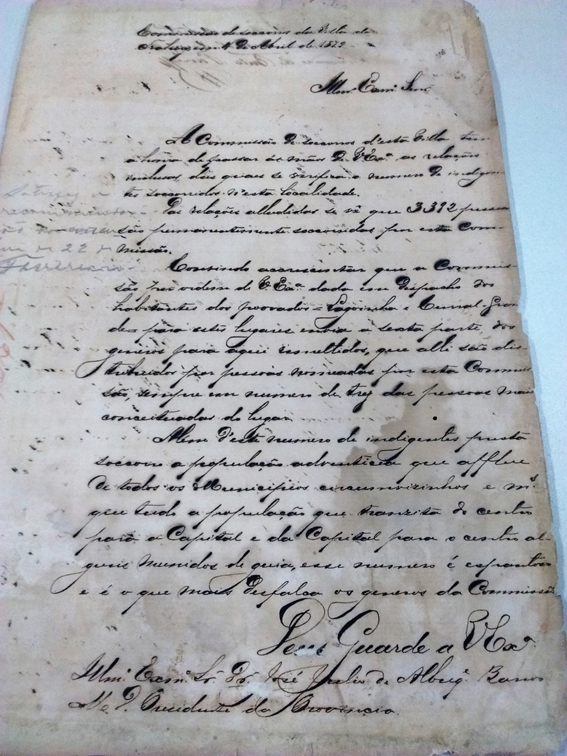 Commissão de soccorros da Villa de
4 de Abril de 1879
Illmo. Exmo. Senr.
A Commissão de soccorros d'esta Villa tem
a honra de passar as mãos de V. Exa. as relações
dos quaes se verifica o numero de indigen-
tes soccorridos n'esta localidade.
Das relações alludidas se vê que 3.392 pessoas
são permanentemente soccorridas por esta Com-
missão.
22
Fevereiro
Convindo accrescentar que a Commis-
são por ordem de V. Exa. dada em despacho dos
habitantes dos povoados = Lagoinha e Curral-Gran-
de, para estes lugares envia a sexta parte dos
generos para aqui remettidos, que alli são des-
tribuidos por pessoas nomeadas por esta Commis-
são, sempre em numero de tres das pessoas mais
conceituadas do lugar.
Alem d'este numero de indigentes presta
soccorro a população adventicia que afflue
de todos os Municipios circumvizinhos e
que toda a população que tranzita do centro
para a Capital e da Capital para o centro al-
guns munidos de guia, esse numero é espantoso
e é o que mais desfalca os generos da Commissão
Deus Guarde a V. Exa.
Illmo. Exmo. Sr. Dr. José Julio de Albuqe. Barros
M. D. Presidente da Provincia.